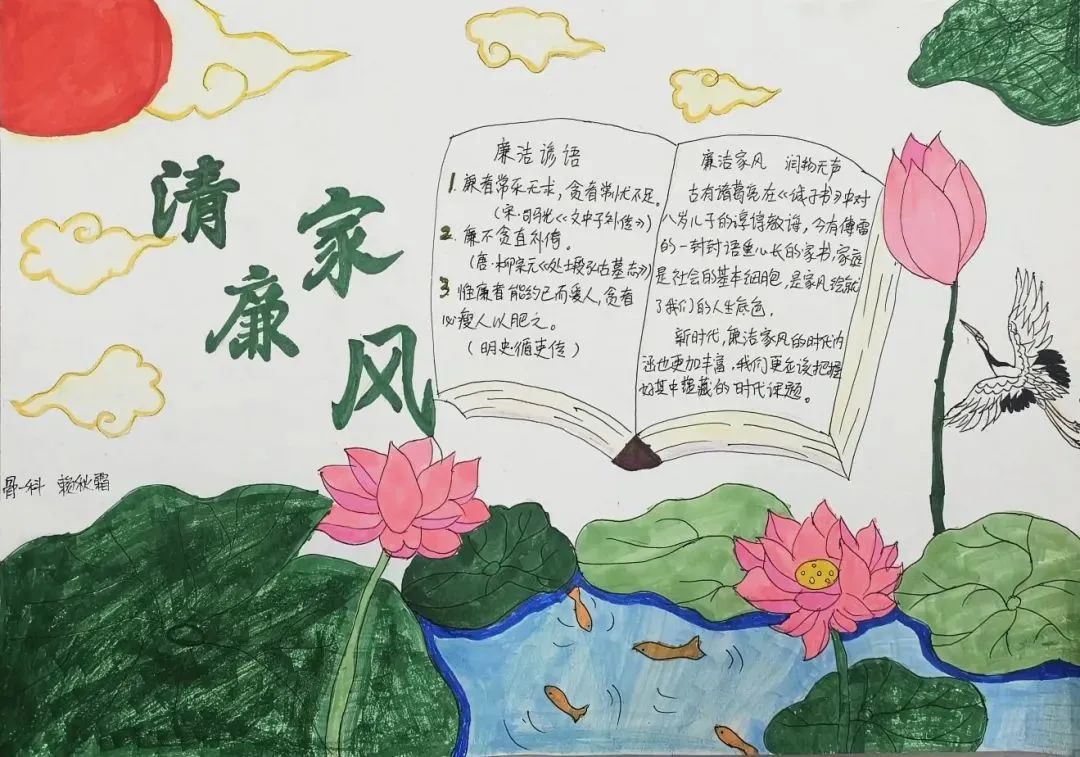 清廉家风
廉洁谚语
1. 廉者常乐无求，贪者常忧不足。
（宋·司马光《文中子补传》）
2. 廉不贪直不倚。
（唐·柳宗元《处士段弘古墓志》）
3. 性廉者能约己而爱人，贪者
必瘦人以肥之。
（明史·循吏传）
廉洁家风 润物无声
古有诸葛亮在《诫子书》中对
八岁儿子的谆谆教诲，今有傅雷
的一封封语重心长的家书，家庭
是社会的基本细胞，是家风绘就
了我们的人生底色。
新时代，廉洁家风的时代内
涵也更加丰富，我们更应该把握
好其中蕴藏的时代课题。
骨一科 赖秋霜